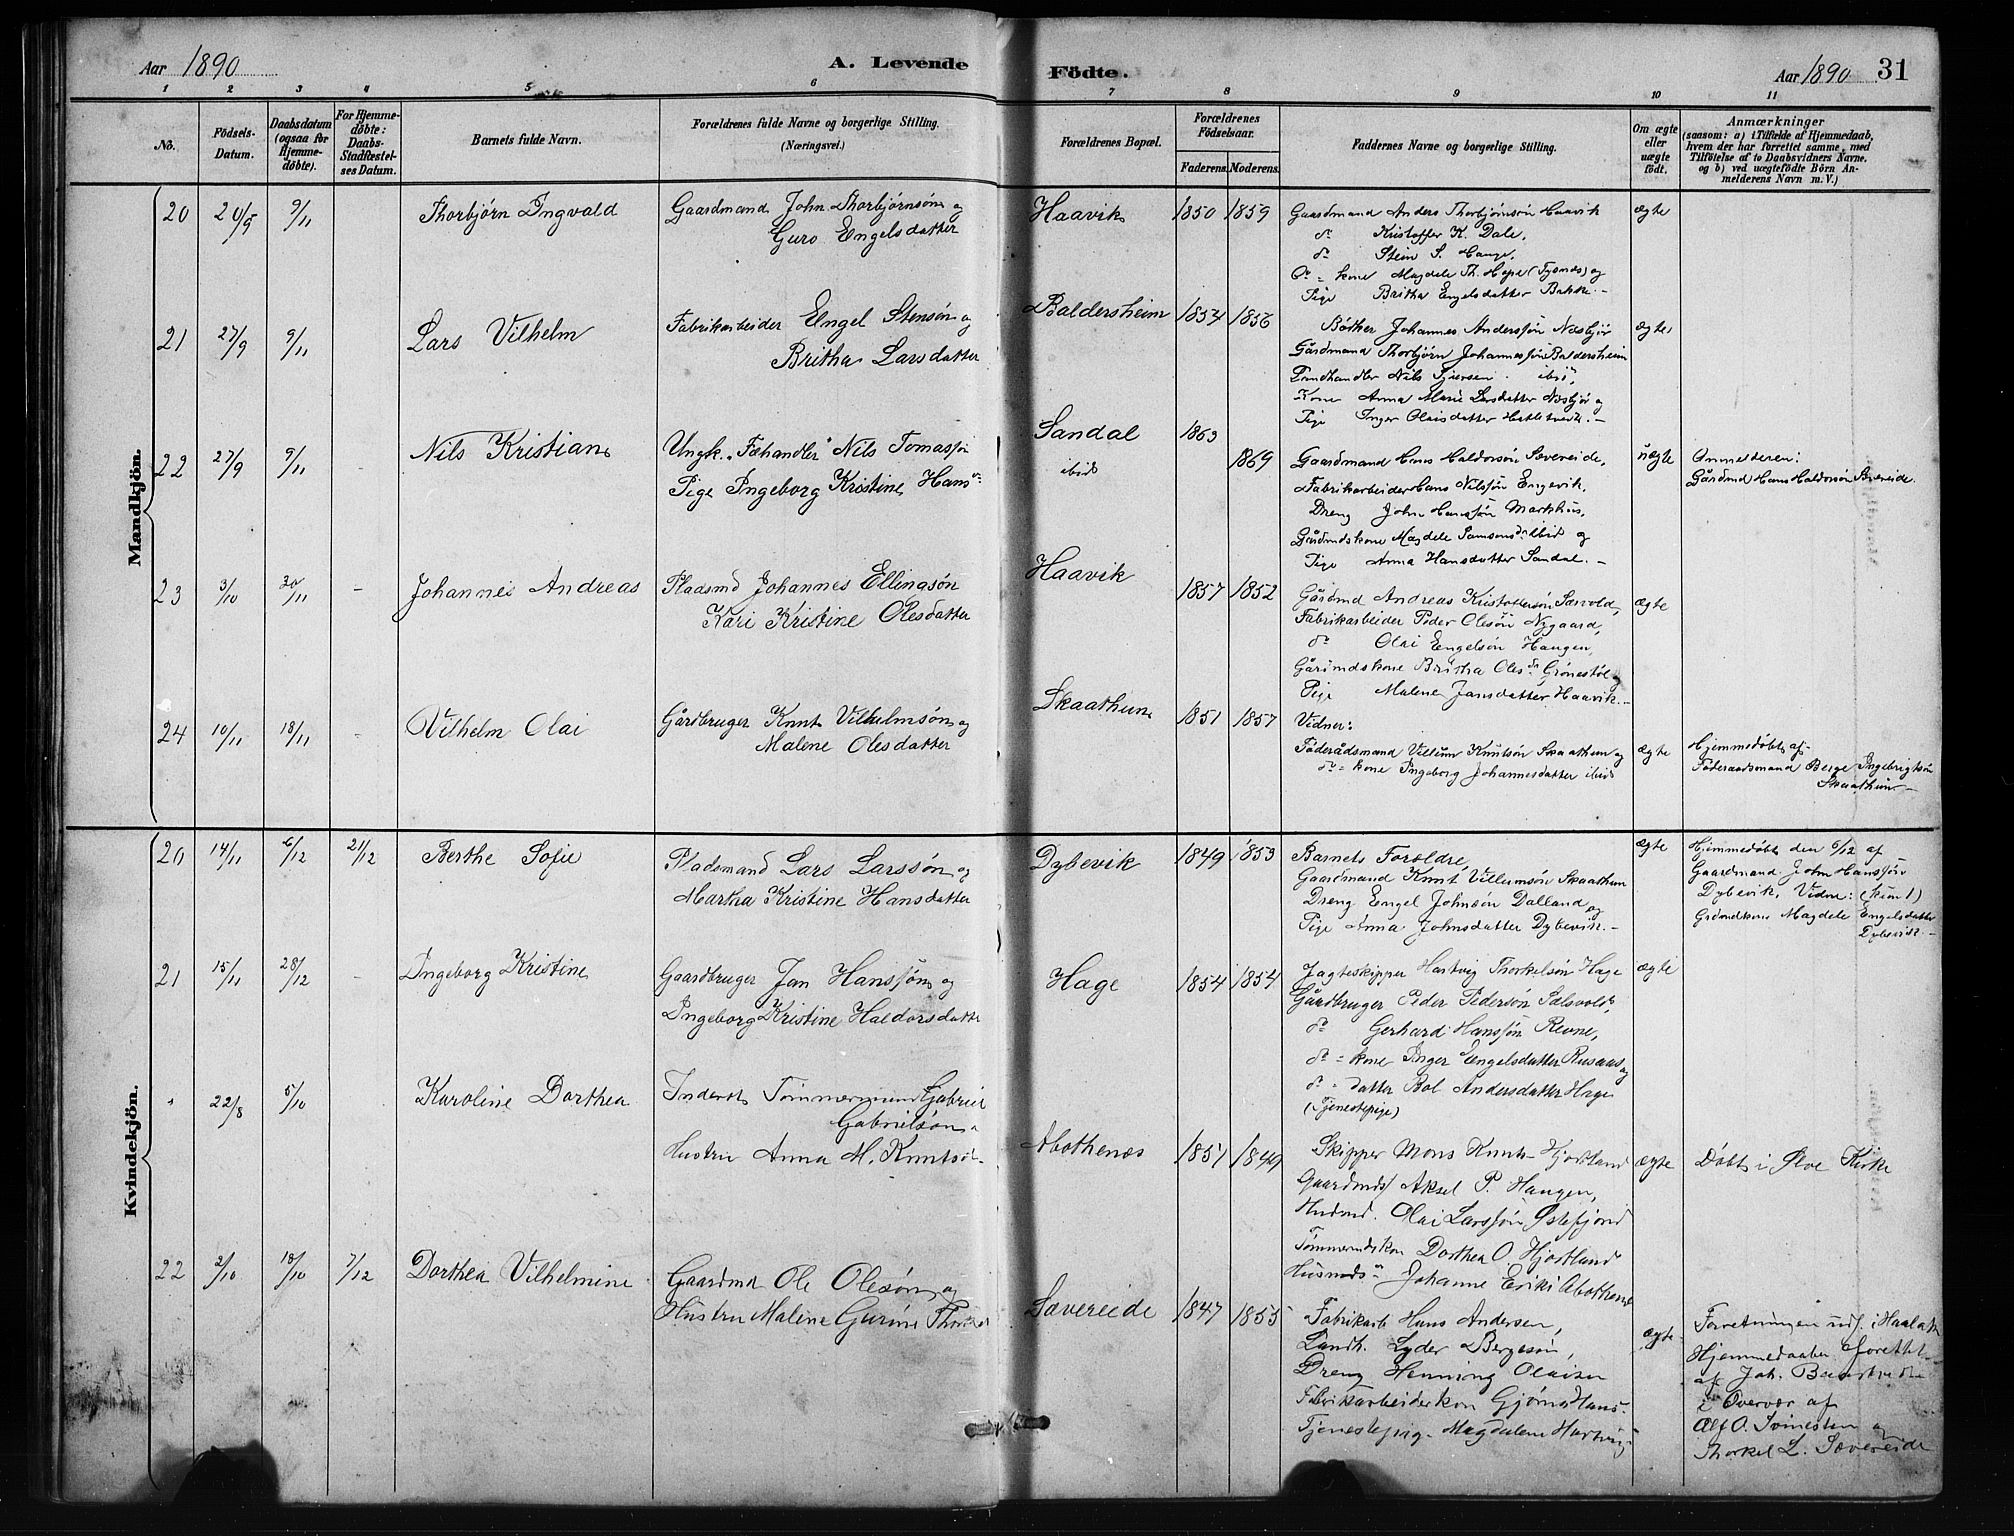 Aar 1890
A. Levende
Födte.
Aar 1890 31
1 2 3 4 5 6 7 8 9 10 11
No.
Födsels-
Datum.
Daabsdatum
(ogsaa for
Hjemme-
döbte).
For Hjemme-
döbte:
Daabs-
Stadfæstel-
ses Datum.
Barnets fulde Navn.
Forældrenes fulde Navne og borgerlige Stilling.
(Næringsvei.)
Forældrenes Bopæl.
Forældrenes
Födselsaar.
Faderens. Moderens.
Faddernes Navne og borgerlige Stilling.
Om ægte
eller
uægte
født.
Anmærkninger
(saasom: a) i Tilfælde af Hjemmedaab,
hvem der har forrettet samme, med
Tilföielse af to Daabsvidners Navne,
og b) ved uægtefödte Börn An-
melderens Navn m. V.)
Mandkjön.
20 20/5 9/11 Thorbjörn Ingvald
Gaardmand John Thorbjörnsön og
Guro Engelsdatter
Haavik 1850 1859
Gaardmand Anders Thorbjörnsön Haavik
do Kristoffer K. Dale,
do Stein S. Hauge,
do = kone Magdele Th. Hope (Tysnæs) og
Pige Britha Engelsdatter Bakke. -
ægte
21 27/9 9/11 Lars Vilhelm
Fabrikarbeider Engel Stensön og
Britha Larsdatter
Baldersheim 1854 1856
Johannes Anderssön
Gårdmand Thorbjörn Johannessön Baldersheim
Nils ibid,
Kone Anna Marie Larsdatter og
Pige Inger Olaisdatter
ægte
22 27/9 9/11 - Nils Kristian
Ungk. Fæhandler Nils Tomassön
Pige Ingeborg Kristine Hansdr
Sandal 1863
ibid 1869
Gaardmand Hans Haldorsön Sævereide,
Fabrikarbeider Hans Nilssön Engevik,
Dreng John Hanssön Markhus,
Gårdmdskone Magdele Samsonsdr ibid og
Pige Anna Hansdatter Sandal. -
uægte
Anmelderen:
Gårdmd Hans Haldorsön Sævereide.
23 3/10 30/11 - Johannes Andreas
Pladsmd Johannes Ellingsön
Kari Kristine Olesdatter
Haavik 1857 1852
Gårdmd Andreas Kristoffersön Sævold,
Fabrikarbeider Peder Olesön Nygaard,
do Olai Engelsön Haugen,
Gårdmdskone Britha Olesdr Grönestöl og
Pige Malene Jansdatter Haavik. -
ægte
24 10/11 18/11 - Vilhelm Olai
Gårdbruger Knut Vilhelmsön og
Malene Olesdatter
Skaathun 1851 1857
Vidner:
Föderådsmand Villum Knutsön Skaathun og
do = kone Ingeborg Johannesdatter ibid
ægte
Hjemmedöbt af
Föderaadsmand Berge Ingebrigtsön
Skaathun -
Kvindekjön.
20 14/11 6/12 21/12 Berthe Sofie
Pladsmand Lars Larssön og
Martha Kristine Hansdatter
Dybevik 1849 1853
Barnets Foroldre,
Gaardmand Knut Villumsön Skaathun
Dreng Engel Johnsön Dalland og
Pige Anna Johnsdatter Dybevik. -
ægte
Hjemmedöbt den 6/12 af
Gaardmand John Hanssön
Dybevik, Vidne: (kun 1)
Magdele Engelsdatter
Dybevik. -
21 15/11 28/12 - Ingeborg Kristine
Gaardbruger Jan Hanssön og
Ingeborg Kristine Haldorsdatter
Hage 1854 1854
Jagteskipper Hartvig Thorkelsön Hage
Gårdbruger Peder Pedersön Sælsvold,
do Gerhard Hanssön Revne,
do = kone Inger Engelsdatter Rusaas og
do = datter Bol Andersdatter Hage
(Tjenestepige)
ægte
" 22/8 5/10 Karoline Dorthea
Inderst Tömmermand Gabriel
Gabrielsön
Hustru Anna M. Knutsd.
Abothenæs 1851 1849
Skipper Mons Knuts. Hjortland
Gaardmds/ Aksel P. Haugen,
Husmd. Olai Larssön Østefjord
Tömmermdskon Dorthea O. Hjortland
Johanne Eriks Abothenæs
ægte
Döbt i Ølve Kirke
22 2/10 18/10 7/12 Dorthea Vilhelmine
Gaardmd Ole Olesön og
Hustru Malene Gurine
Sævereide 1847 1855
Fabrikarb Hans Andersen,
Landh. Lyder Bergesön,
Dreng Henning Olaisen
Fabrikarbeiderkon Gjöroa Hans-
Tjenestepige Magdalene Hartvigs
ægte
Forretningen udf. i
Hjemmedaaben forettet
af Joh.
i Overvær af
Alf O. og
Thorkel L. Sævereide